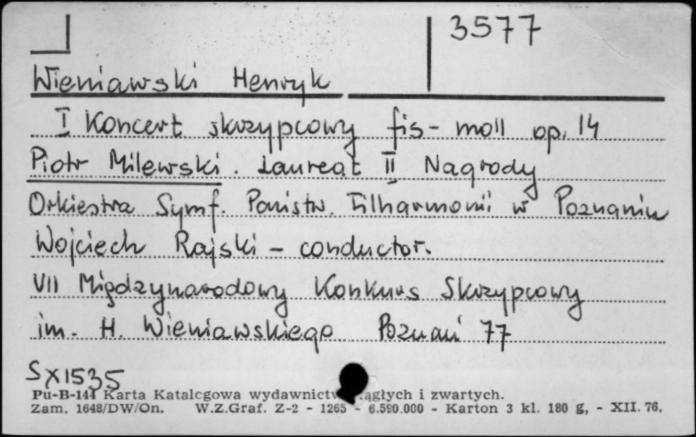 3577
Wieniawski Henryk
I Koncert skrzypcowy fis-moll op. 14
Piotr Milewski. Laureat II Nagrody
Orkiestra Symf. Państw. Filharmonii w Poznaniu
Wojciech Rajski - conductor.
VII Międzynarodowy Konkurs Skrzypcowy
im. H. Wieniawskiego Poznań 77
SX1535
Pu-B-144 Karta Katalcgowa wydawnictw ągłych i zwartych.
Zam. 1648/DW/On. W.Z.Graf. Z-2 - 1265 - 6.590.000 - Karton 3 kl. 180 g, - XII. 76.